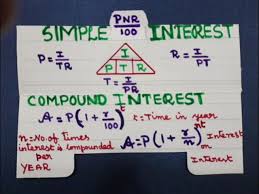 SIMPLE PNR/100 INTEREST
P = I/TR
R = I/PT
I
P T R
T = I/PR
COMPOUND INTEREST
A = P(1 + r/100)^t t = Time in year
n = No. of Times
interest is compounded
per
YEAR
A = P(1 + r/n)^nt Interest
on
Interest